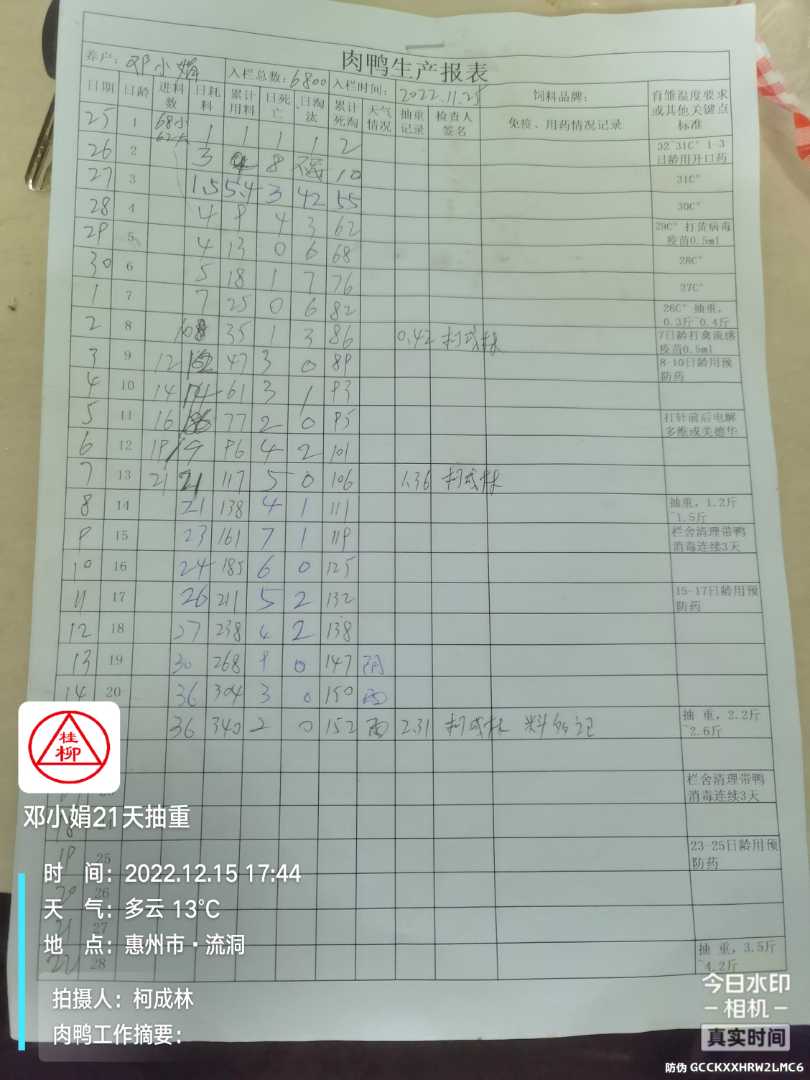 肉鸭生产报表
养户: 邓小娟 入栏总数: 6800 入栏时间: 2022.11.25 饲料品牌: 育雏温度要求或其他关键点标准
日期 日龄 进料数 日耗料 累计用料 日死亡 日淘汰 累计死淘 天气情况 抽重记录 检查人签名 免疫、用药情况记录
25 1 1 1 1 1 2
26 2 3 8 10 32~31C° 1-3日龄用开口药
27 3 1.5 5.4 3 42 55 31C°
28 4 4 9 4 3 62 30C°
29 5 4 13 0 6 68 29C° 打黄病毒疫苗0.5ml
30 6 5 18 1 7 76 28C°
1 7 7 25 0 6 82 27C°
2 8 35 1 3 86 0.42 柯成林 26C° 抽重，0.3斤~0.4斤
7日龄打禽流感疫苗0.5ml
3 9 12 47 3 0 89 8-10日龄用预防药
4 10 14 14 61 3 1 93
5 11 16 77 2 0 95 打针前后电解多维或美德华
6 12 19 19 96 4 2 101
7 13 21 21 117 5 0 106 1.36 柯成林
8 14 21 138 4 1 111 抽重，1.2斤~1.5斤
9 15 23 161 7 1 119 栏舍清理带鸭消毒连续3天
10 16 24 185 6 0 125
11 17 26 211 5 2 132 15-17日龄用预防药
12 18 27 238 4 2 138
13 19 30 268 9 0 147 阴
14 20 36 304 3 0 150 雨
36 340 2 0 152 雨 2.31 柯成林 抽 重，2.2斤~2.6斤
栏舍清理带鸭消毒连续3天
19 25 23-25日龄用预防药
20 26
21 27
22 28 抽 重，3.5斤~4.2斤
桂柳
邓小娟21天抽重
时 间: 2022.12.15 17:44
天 气: 多云 13℃
地 点: 惠州市·流洞
拍摄人: 柯成林
肉鸭工作摘要:
今日水印
相机
真实时间
防伪 GCCKXXHRW2LMC6